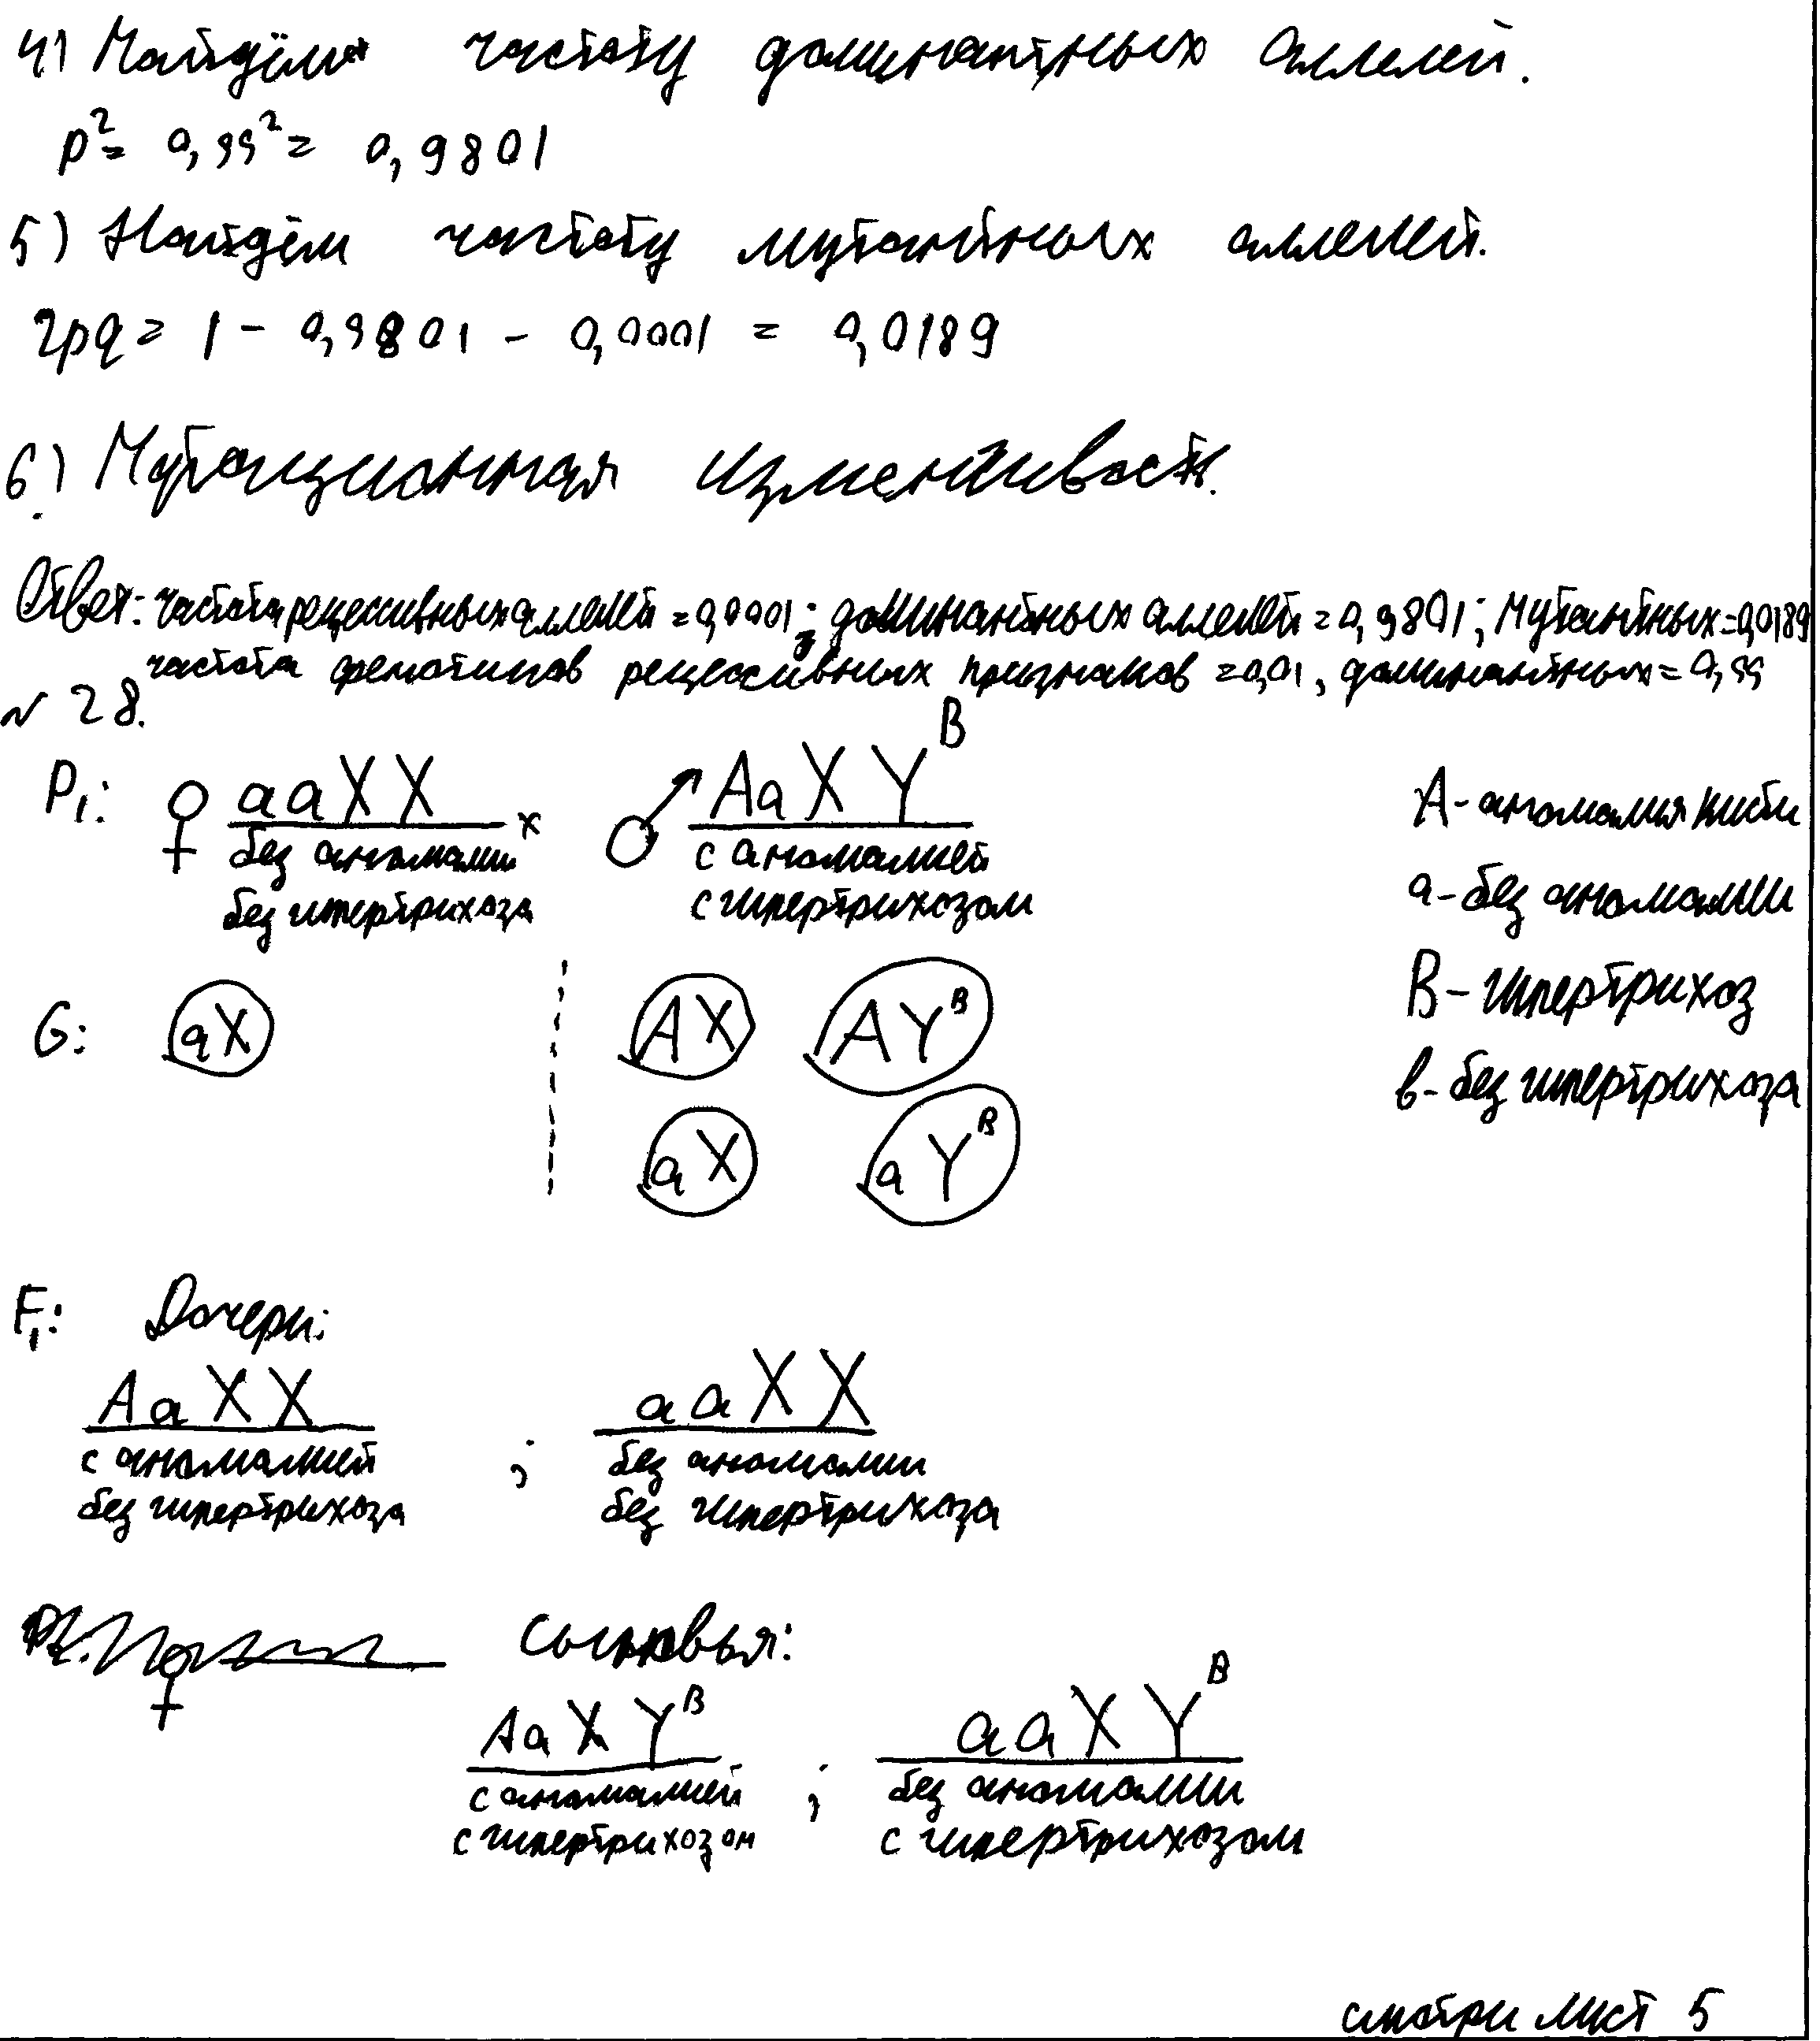 4) Найдём частоту доминантных аллелей.
p² = 0,99² = 0,9801
5) Найдём частоту мутантных аллелей.
2pq = 1 - 0,9801 - 0,0001 = 0,0189
6) Мутационная изменчивость.
Ответ: частота рецессивных аллелей = 0,0001; доминантных аллелей = 0,9801; мутантных = 0,0189
частота фенотипов рецессивных признаков = 0,01, доминантных = 0,99
№ 28.
P₁: ♀ aaXX x ♂ AaXYᴮ
без аномалии с аномалией
без гипертрихоза с гипертрихозом
A - аномалия кисти
a - без аномалии
B - гипертрихоз
b - без гипертрихоза
G: aX AX AYᴮ
aX aYᴮ
F₁: Дочери:
AaXX ; aaXX
с аномалией без аномалии
без гипертрихоза без гипертрихоза
Сыновья:
AaXYᴮ ; aaXYᴮ
с аномалией без аномалии
с гипертрихозом с гипертрихозом
смотри лист 5